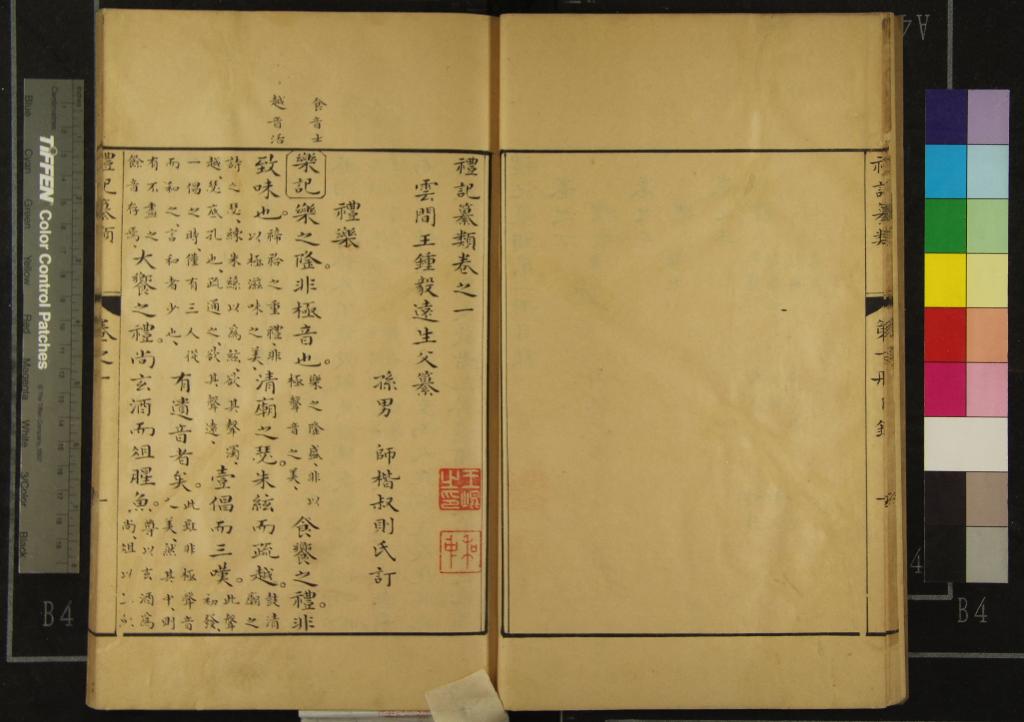 禮記纂類卷之一
雲間王鍾毅遠生父纂
孫男 師楷叔則氏訂
禮樂
食音士
越音活
樂記樂之隆非極音也。樂之隆盛、非以極聲音之美、食饗之禮。非
致味也。禘祫之重禮、非以極滋味之美、清廟之瑟。朱絃而疏越。鼓清廟之
詩之瑟、練朱絲以為絃、欲其聲濁、越、瑟底孔也、疏通之、欲其聲遠、壹倡而三嘆。此聲初發、
一倡之時、僅有三人從而和之、言和者少也、有遺音者矣。此雖非極聲音之美、然其中、則
有不盡之餘音存焉、大饗之禮。尚玄酒而俎腥魚。尊以玄酒為尚、俎以
禮記纂類
卷之一
一
禮記纂類
TIFFEN Color Control Patches
Blue
Cyan
Green
Yellow
Red
Magenta
White
3/Color
Black
B4
B4
A4